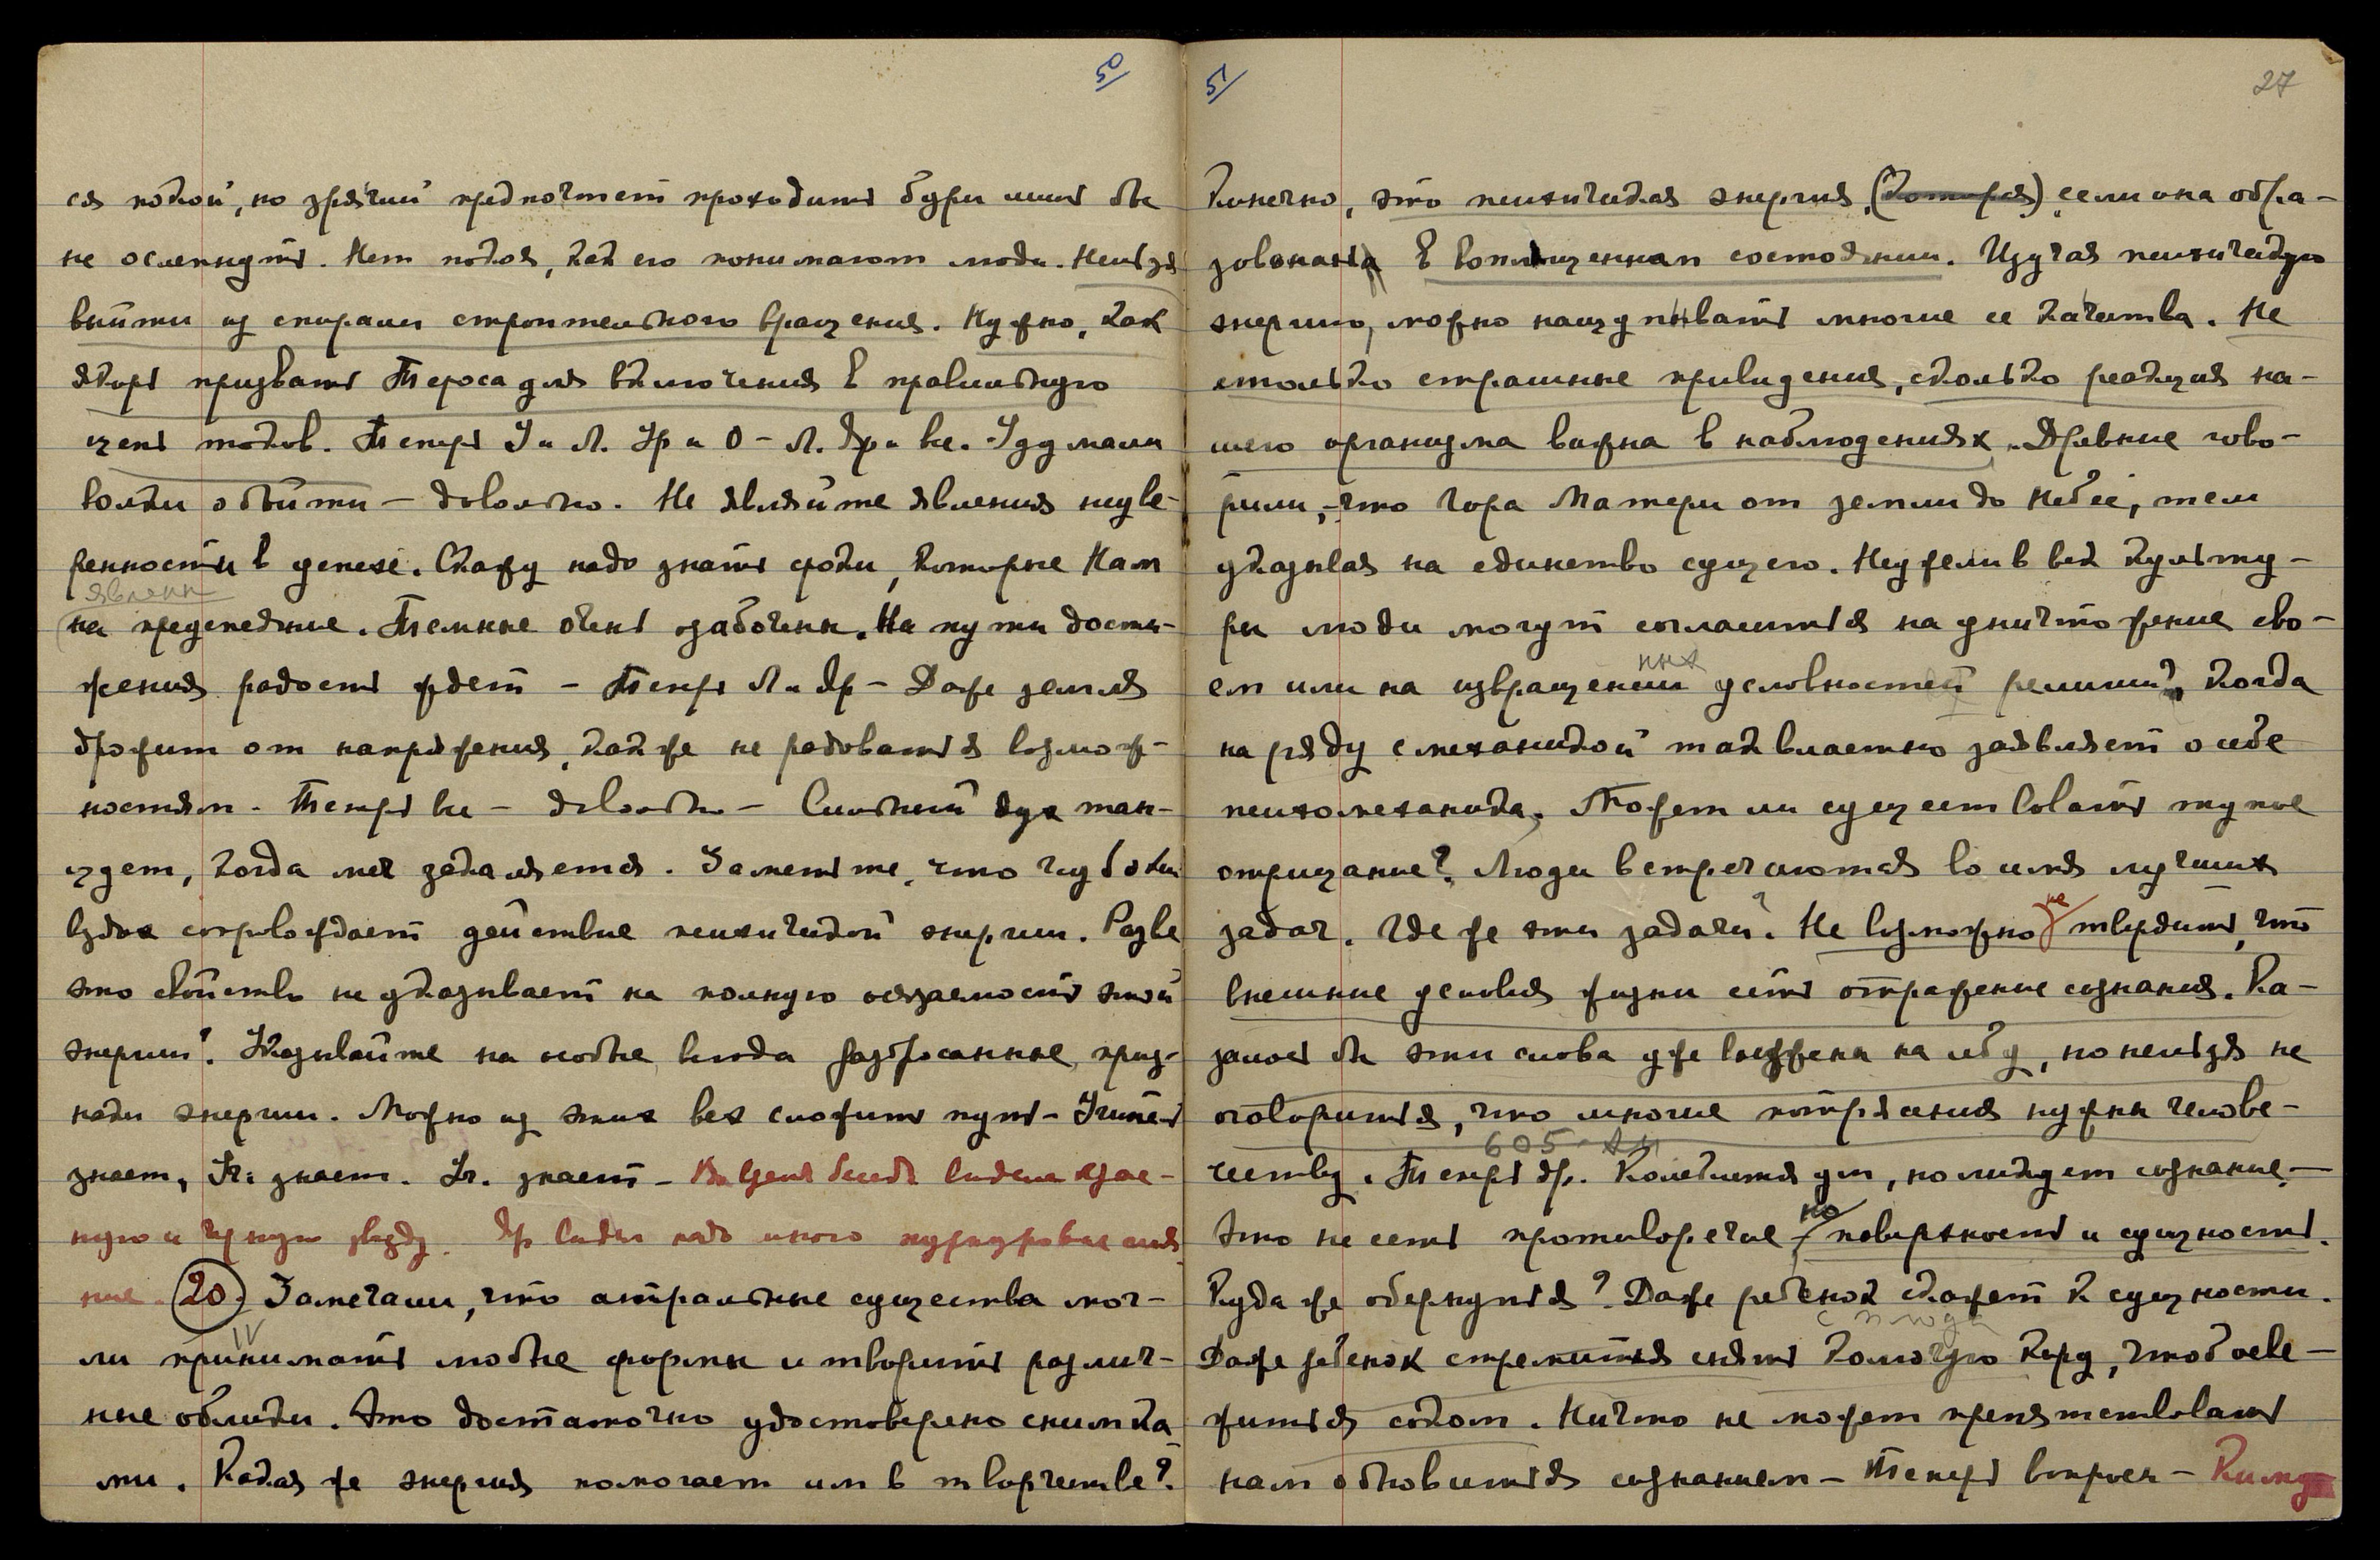 50
ся покой, но зрячий предпочтет проходить бури лишь бы
не ослепнуть. Нет покоя, как его понимают люди. Нельзя
выйти из спирали строительного вращения. Нужно, как
якорь призвать Тероса для включения в правильную
цепь токов. Теперь У и Л. Ур и О – Л. Яр и все. Удумали
волки обойти – довольно. Не являйте явления неуве-
ренности в успехе. Скажу надо знать сроки, которые Нам
явлены
на предпеяние. Темные очень озабочены. На пути дости-
жения радость ждет – Теперь Л и Яр – Даже земля
дрожит от напряжения, как же не радоваться возмож-
ностям – Теперь все – довольно – Сильный дух тан-
цует, когда меч закаляется. Заметьте, что глубокий
вздох сопровождает действие психической энергии. Разве
это свойство не указывает на полную осязаемость этой
энергии? Указывайте на особые всюда разбросанные приз-
наки энергии. Можно из этих вех сложить путь – Учитель
знает, Уч. знает. Уч. знает –
20. Замечали, что астральные существа мог-
IV
ли принимать любые формы и творить различ-
ные облики. Это достаточно удостоверено снимка
ми. Какая же энергия помогает им в творчестве?
51
27
Конечно, это психическая энергия, (которая) если она обра-
зована в воплощенном состоянии. Изучая психическую
энергию, можно нащупывать многие ее качества. Не
столько страшные привидения, сколько реакция на-
шего организма важна в наблюдениях. Древние гово-
рили, – что Гора Матери от земли до Небес, тем
указывая на единство сущего. Неужели в век культу-
ры люди могут согласиться на уничтожение сво-
ем или на извращении условностей религий? Когда
нных
на ряду с механикой так властно заявляет о себе
психомеханика. Может ли существовать тупое
отрицание? Люди встречаются во имя лучших
задач. Где же эти задачи? Не возможно не твердить, что
внешние условия жизни есть отражение сознания. Ка-
залось бы эти слова уже выжжены на лбу, но нельзя не
оговориться, что многие потрясения нужны челове-
605
честву. Теперь Яр. Колеблется ум, но ликует сознание –
Это не есть противоречие, но поверхность и сущность.
Куда же обернуться? Даже ребенок скажет к сущности.
с плода
Даже ребенок стремится снять колючую кору, чтоб осве-
житься соком. Ничто не может препятствовать
нам обновиться сознанием – Теперь вопросы –